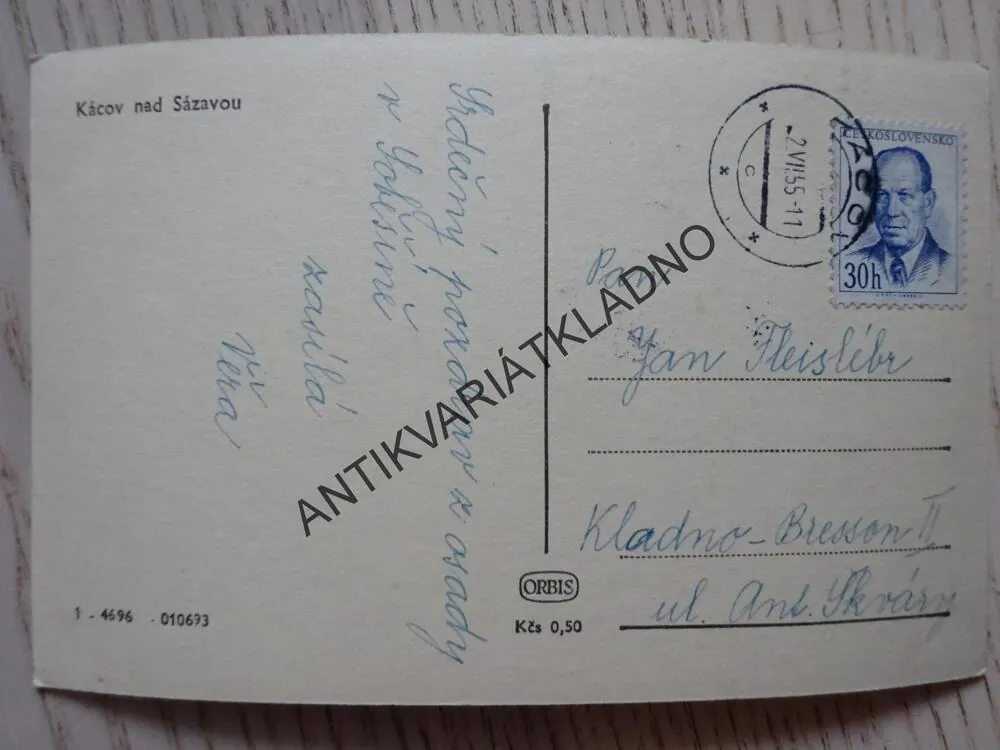 Kácov nad Sázavou
Srdečný pozdrav z osady
v Soběšíně
zasílá
Věra
1 - 4696 - 010693
ORBIS
Kčs 0,50
KÁCOV
2.VII.55-11
C
ČESKOSLOVENSKO
30h
Pan
Jan Fleislébr
Kladno - Bresson II
ul. Ant. Škváry
ANTIKVARIÁTKLADNO